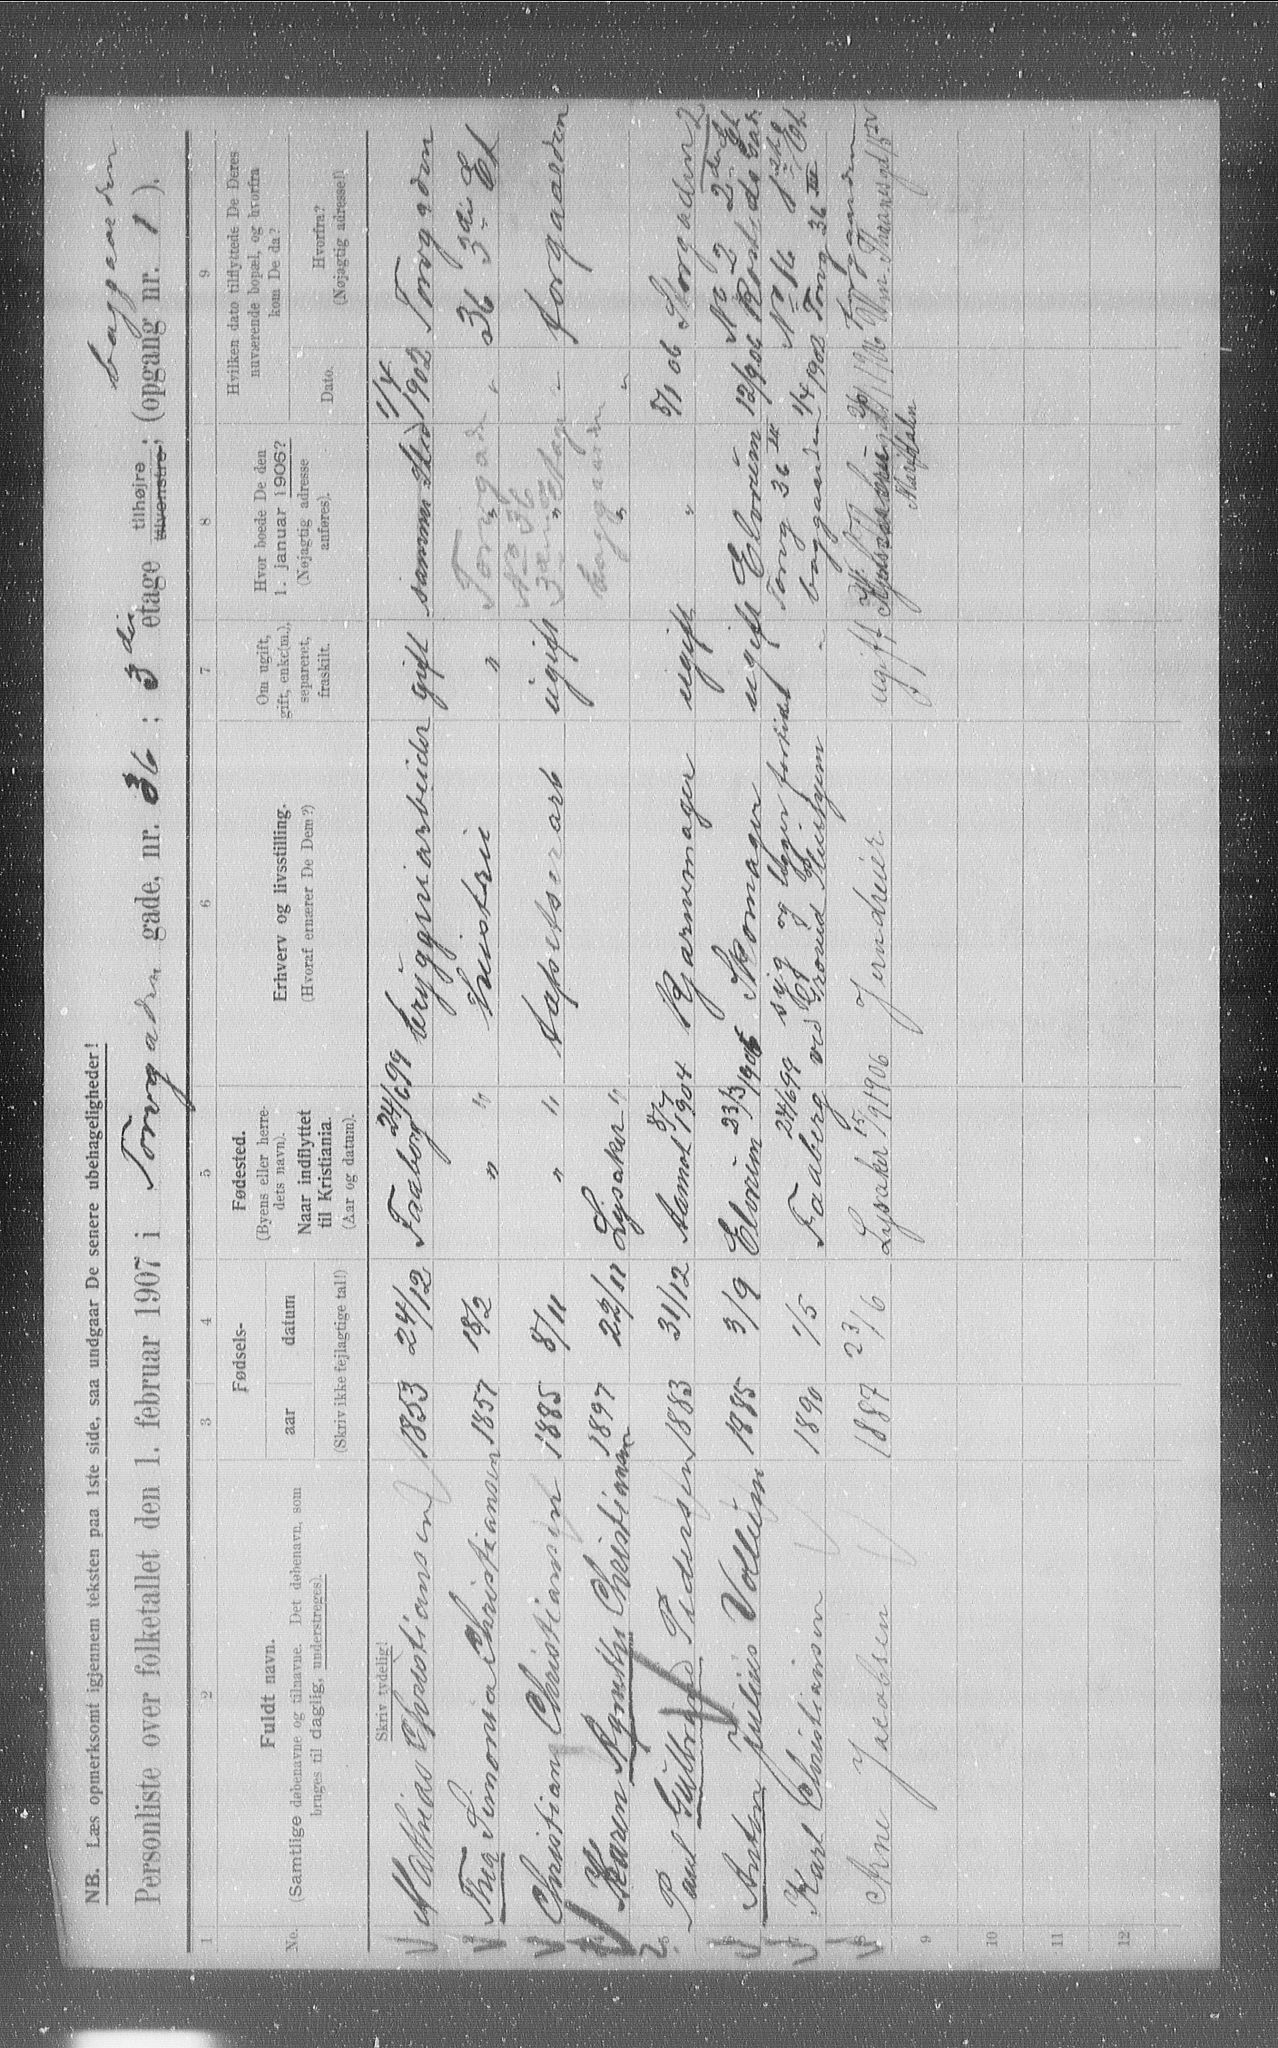 NB. Læs opmerksomt igjennem teksten paa 1ste side, saa undgaar De senere ubehageligheder!
baggaarden
Personliste over folketallet den 1. februar 1907 i Torvgaden gade, nr. 36 ; 3die etage tilhøjre tilvenstre; (opgang nr. 1 ).
1 2 3 4 5 6 7 8 9
No.
Fuldt navn.
(Samtlige døbenavne og tilnavne. Det døbenavn, som
bruges til daglig, understreges).
Fødsels-
aar datum
(Skriv ikke fejlagtige tal!)
Fødested.
(Byens eller herre-
dets navn).
Naar indflyttet
til Kristiania.
(Aar og datum).
Erhverv og livsstilling.
(Hvoraf ernærer De Dem?)
Om ugift,
gift, enke(m.),
separeret,
fraskilt.
Hvor boede De den
1. januar 1906?
(Nøjagtig adresse
anføres).
Hvilken dato tilflyttede De Deres
nuværende bopæl, og hvorfra
kom De da?
Dato.
Hvorfra?
(Nøjagtig adresse!)
Skriv tydelig!
Mathias Christiansen 1853 24/12 Faaberg 24/6 99 bryggeriarbeider gift samme sted 1/4 1902 Torvgaden
2 Thea Simonia Christiansen 1857 18/2 " " hustru " Torvgade " 36 3die Et
3 Christian Christiansen 1885 8/11 " " tapetserarb ugift No 36 3die etage " forgaarden
4 Karen Agnethe Christiansen 1897 22/11 Lysaker " baggaarden "
5 Paul Gulbrand Pedersen 1883 31/12 Aamot 8/7 1904 Gjørtmager ugift " 5/1 06 Storgaden 2
No 2 2den Et
6 Anton Julius Vollum 1885 3/9 Elvrum 23/3 1906 Skomager ugift Elvrum 12/9 06
7 Karl Christiansen 1890 1/5 Faaberg 24/6 99 syg og ligger fortiden ved Grorud Plejehjem " Torvg 36 III baggaarden 1/4 1902 Torvg 36 III
forgaarden
8 Arne Jacobsen 1887 23/6 Lysaker 15/9 1906 Jerndreier ugift Maridalen
9
10
11
12